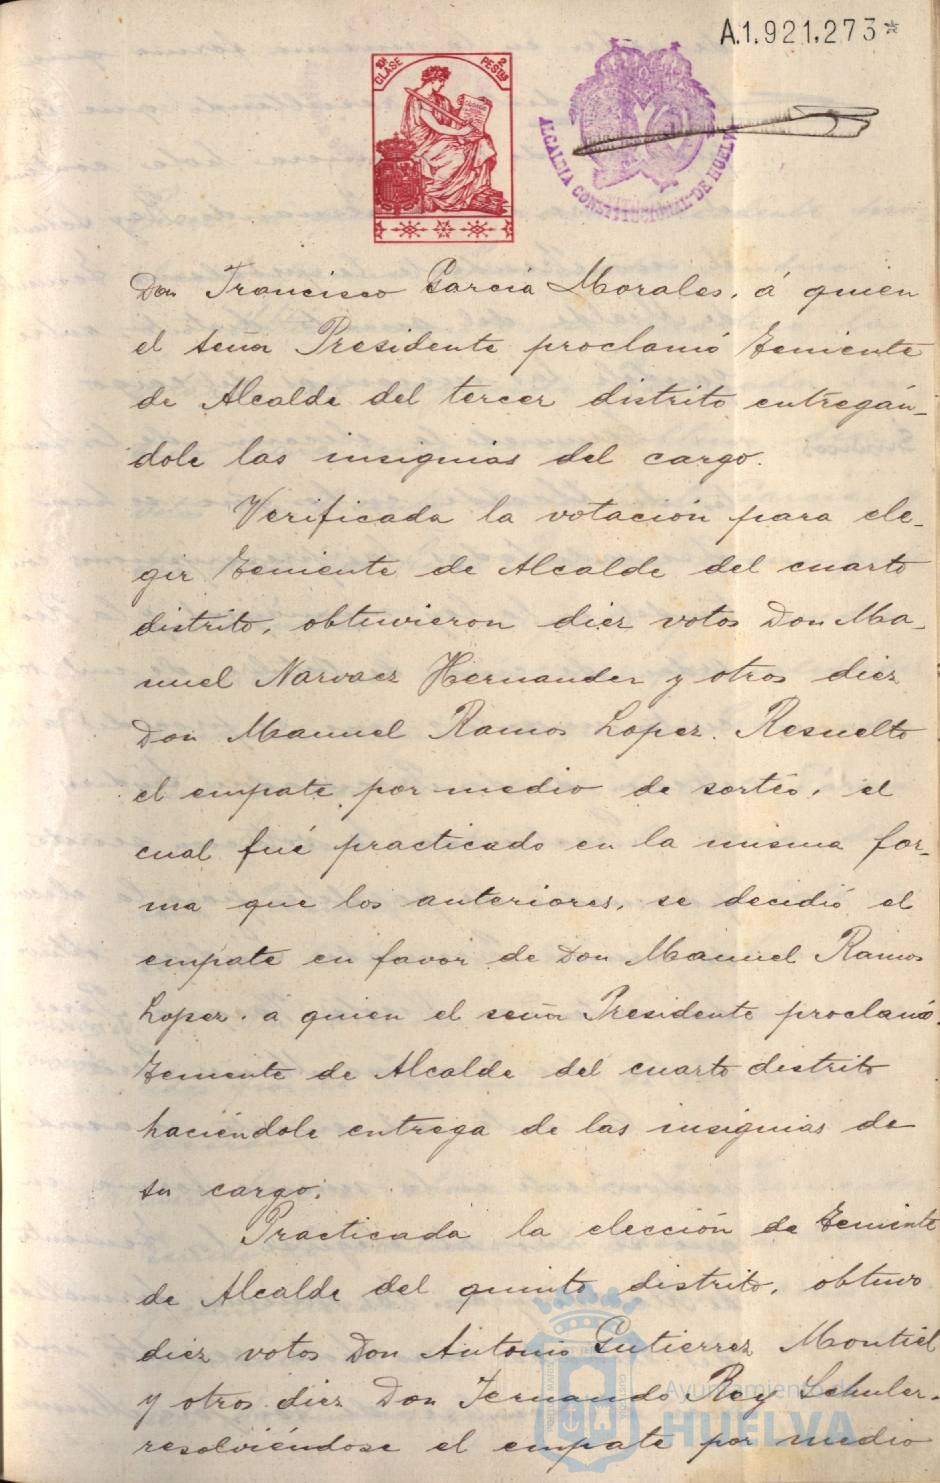 A.1.921.273*
10ª CLASE 2 PESTAS
ALCALDIA CONSTITUCIONAL DE HUELVA
Don Francisco Garcia Morales, á quien
el señor Presidente proclamó Teniente
de Alcalde del tercer distrito entregán-
dole las insignias del cargo.
Verificada la votación para ele-
gir Teniente de Alcalde del cuarto
distrito, obtuvieron diez votos Don Ma-
nuel Narvaez Hernandez y otros diez
Don Manuel Ramos Lopez. Resuelto
el empate por medio de sortéo, el
cual fué practicado en la misma for-
ma que los anteriores, se decidió el
empate en favor de Don Manuel Ramos
Lopez, a quien el señor Presidente proclamó
Teniente de Alcalde del cuarto distrito
haciéndole entrega de las insignias de
su cargo.
Practicada la elección de Teniente
de Alcalde del quinto distrito, obtuvo
diez votos Don Antonio Gutierrez Montiel
y otros diez Don Fernando Rey Schuler-
resolviéndose el empate por medio
Ayuntamiento de
HUELVA